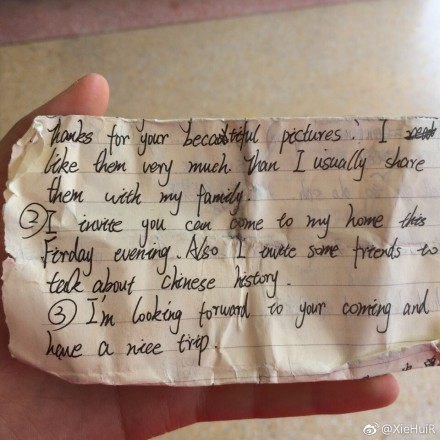 Thanks for your becautiful pictures! I
like them very much. Than I usually share
them with my family.
② I invite you can come to my home this
Firday evening. Also I invite some friends to
talk about Chinese history.
③ I'm looking forward to your coming and
have a nice trip.
@XieHuiR